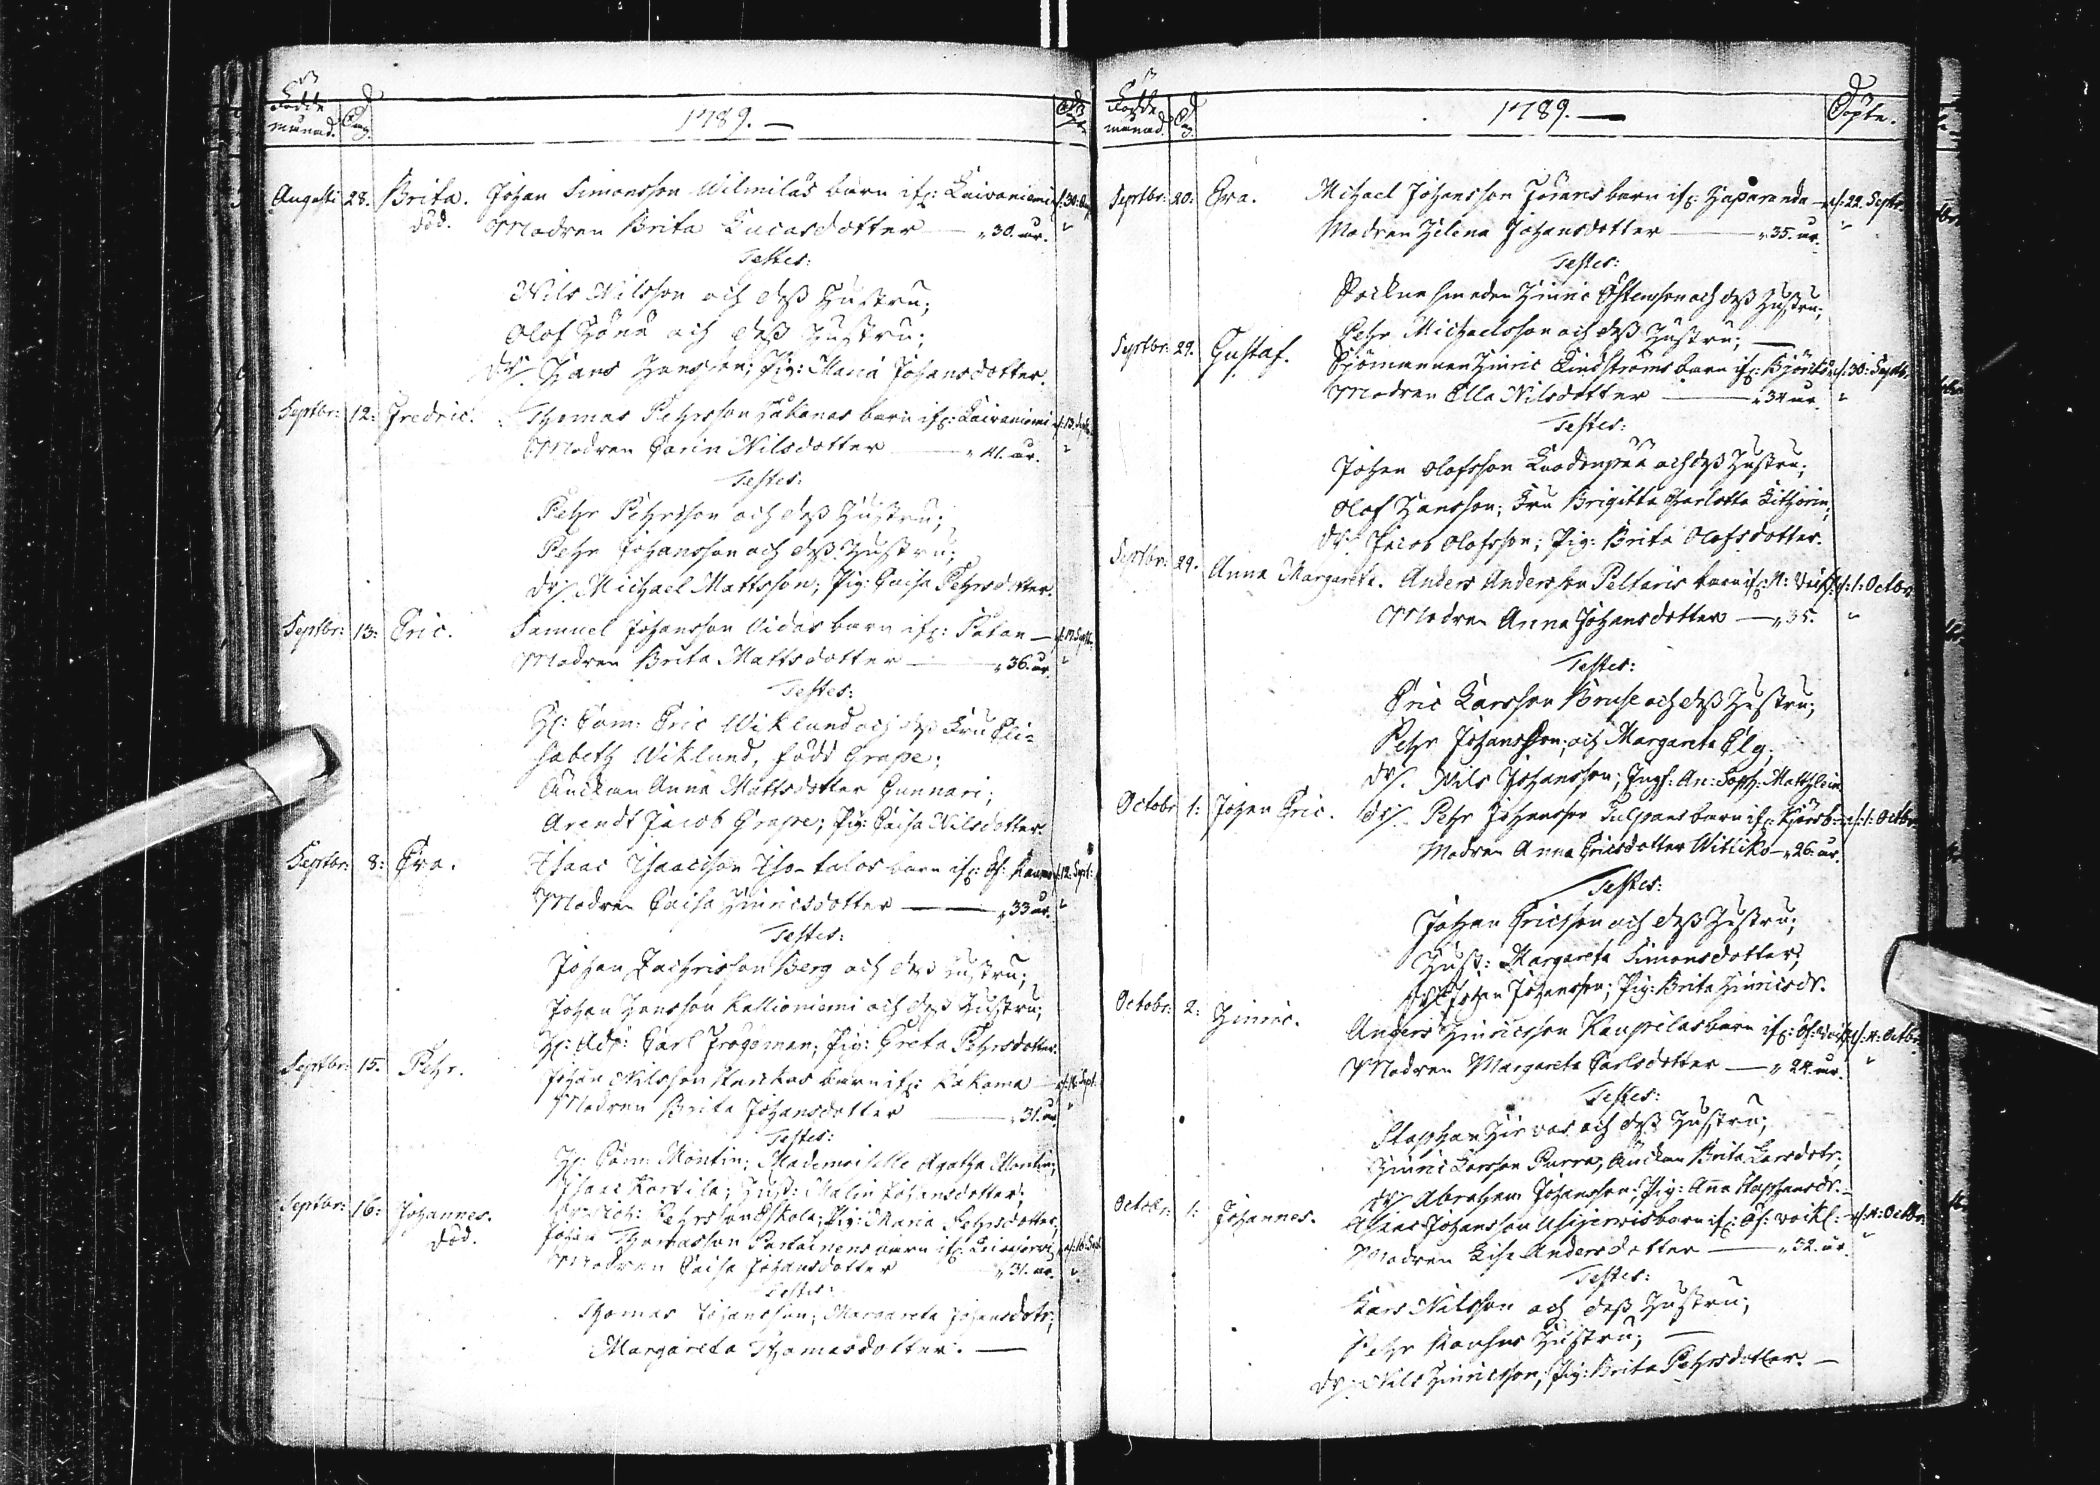 Födde månad. Dag. 1789. — Döpte
Augusti 28. Brita. Johan Simonsson Wilmilås barn ifr: Laivaniemi d. 30. Aug.
död. Modren Brita Lucasdotter — „ 30. år. "
Testes:
Nils Nilsson och dess Hustru;
Olof och dess Hustru;
dr. Hans Hansson; Pig: Maria Johansdotter.
Septbr: 12: Fredric. Thomas Pehrsson barn ifr: Laivaniemi d. 13. Septbr
Modren Carin Nilsdotter — „ 41. år. "
Testes:
Pehr Pehrsson och dess Hustru;
Pehr Johansson och dess Hustru;
dr. Michael Mattsson; Pig: Caisa Pehrsdotter.
Septbr: 13: Eric. Samuel Johansson Vidas barn ifr: — d. 17. Septbr:
Modren Brita Mattsdotter — „ 36. år. "
Testes:
Hr: Com: Eric Wiklund och dess Fru Eli=
sabeth Wiklund, född Grape;
Änckan Anna Mattsdotter Gunnari;
Arendt Jacob Grape; Pig: Caisa Nilsdotter.
Septbr: 8: Eva. Isaac Isaacsson Iso-talos barn ifr: d. 12. Sept:
Modren Caisa Hinricsdotter — „ 33 år. "
Testes:
Johan Zachrisson Berg och dess Hustru;
Johan Hansson Kallioniemi och dess Hustru;
Hr: Adv: Carl Frogoman; Pig: Greta Pehrsdotter.
Septbr: 15. Pehr. Johan Nilsson barn ifr: Kakama — Sept:
Modren Brita Johansdotter — „ 31. år "
Testes:
Hr: Com: Montin; Mademoiselle Agatha Montin;
Isaac Kortila; Hust: Malin Johansdotter;
Joh: Pehrsson Pig: Maria Pehrsdotter;
Septbr: 16: Johannes. Johan Thomasson barn ifr: d. 16. Sept
död. Modren Caisa Johansdotter — „ 31. år. "
Testes:
Thomas Johansson; Margareta Johansdotr;
Margareta Thomasdotter. —
Födde månad. Dag. 1789. — Döpte.
Septbr: 20: Eva. Michael Johansson Jörans barn ifr: Haparanda — d. 22. Septbr
Modren Helena Johansdotter — „ 35. år. "
Testes:
Sockne smeden Hinric Östensson och dess Hustru;
Pehr Michaelsson och dess Hustru; —
Septbr: 29. Gustaf. Sjömannen Hinric Lindströms barn ifr: Björkön d. 30. Septb.
Modren Ella Nilsdotter — „ 34 år. "
Testes:
Johan Olofsson och dess Hustru;
Olof Hansson; Fru Brigitta Charlotta
dr. Jacob Olofsson; Pig: Brita Olofsdotter.
Septbr: 29. Anna Margareta. Anders Andersson Peltaris barn ifr: N: d. 1: Octbr
Modren Anna Johansdotter — „ 35. "
Testes:
Eric Larsson Bruse och dess Hustru;
Pehr Johansson; och Margareta Elg;
dr. Nils Johansson; Jungf: An: Soph:
Octobr 1: Johan Eric. dr. Pehr Johansson barn ifr: d. 1. Octbr
Modren Anna Ericsdotter Witicko — „ 26. år.
Testes:
Johan Ericsson och dess Hustru;
Hust: Margareta Simonsdotter;
dr. Johan Johansson; Pig: Brita Hinricsdr.
Octobr: 2: Hinric. Anders Hinricsson Kaupilas barn ifr: d. 4: Octbr.
Modren Margareta Carlsdotter — „ 24. år. "
Testes:
Staphan Hirvas och dess Hustru;
Hinric Larsson Purra; Änckan Brita Larsdotr;
dr. Abraham Johansson; Pig: Anna Staphansdr. —
Octobr: 1: Johannes. Johansson barn ifr: d. 4: Octbr
Modren Lisa Andersdotter — „ 32. år. "
Testes:
Lars Nilsson och dess Hustru;
Pehr Hustru; —
dr. Nils Hinricsson; Pig: Brita Pehrsdotter. —